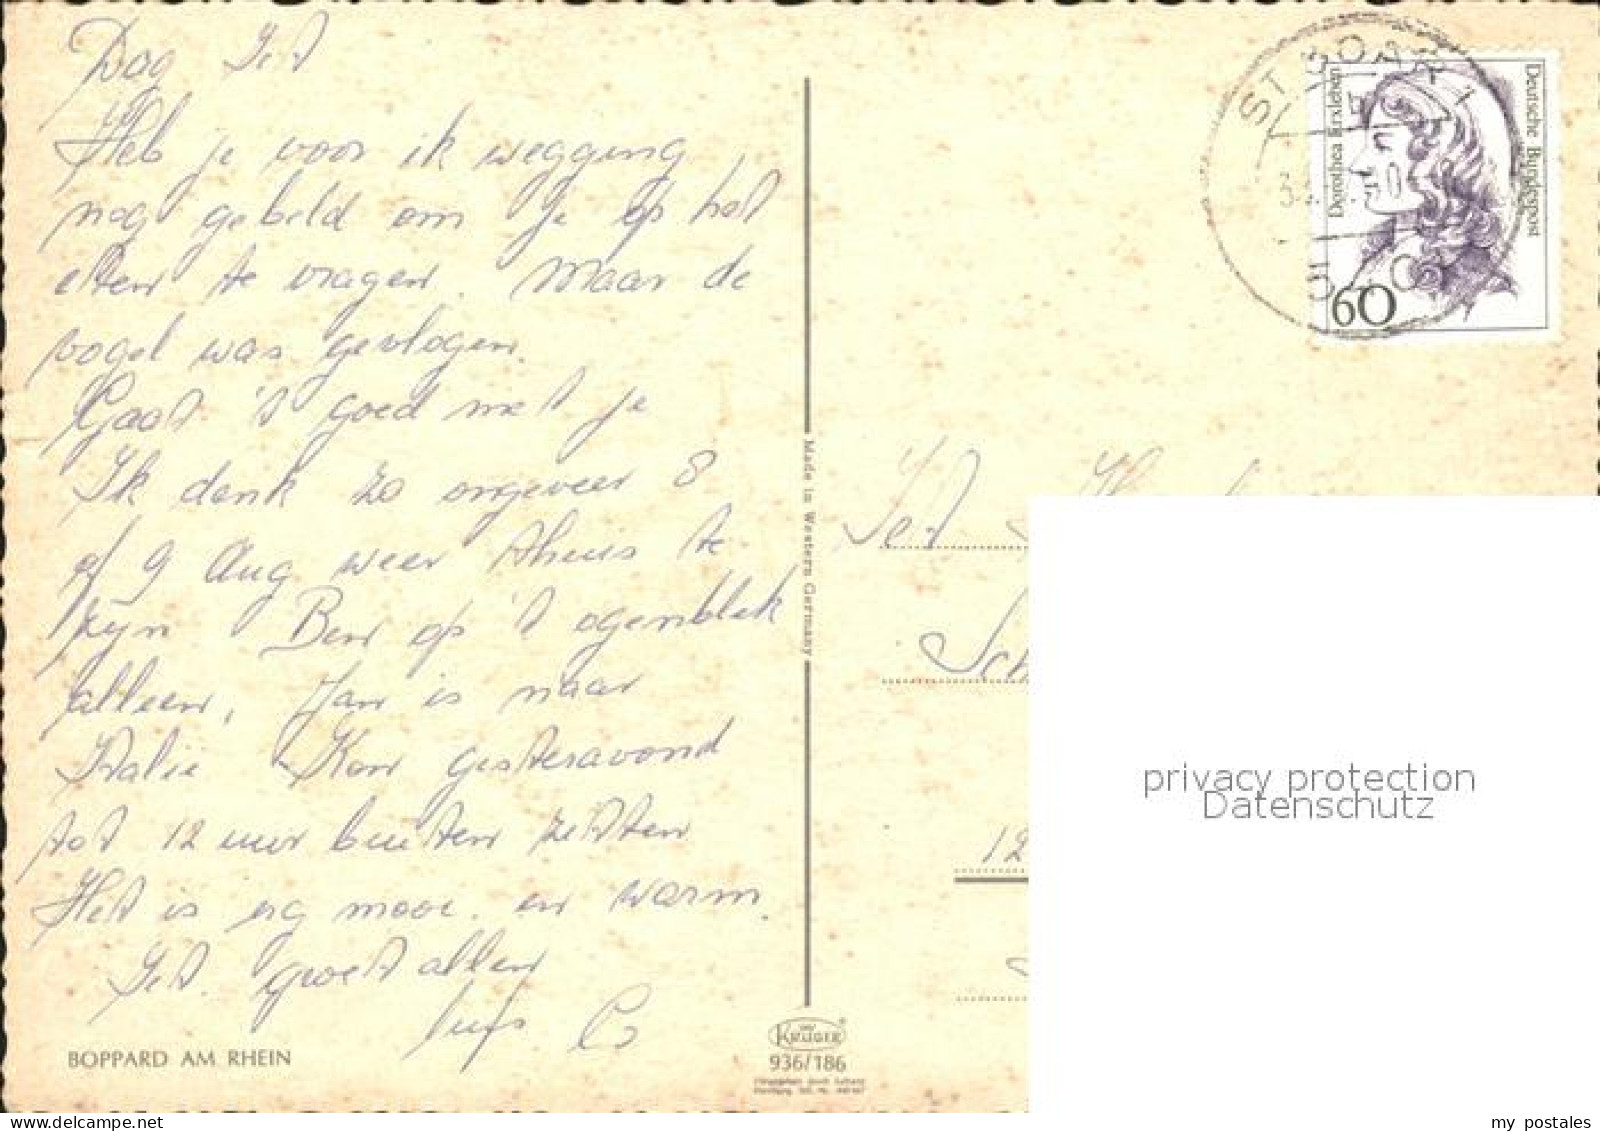 Dag Jet
Heb je voor ik wegging
nog gebeld om je op het
eten te vragen. Maar de
vogel was gevlogen.
Gaat 't goed met je
Ik denk zo ongeveer 8
of 9 Aug weer thuis te
zijn Ben op 't ogenblik
alleen, Jan is naar
Italie Kon gisteravond
tot 12 uur buiten zitten
Het is erg mooi. en warm.
Jet. groet allen
BOPPARD AM RHEIN
Made in Western Germany
KRÜGER
936/186
ST GOAR 1
Deutsche Bundespost
Dorothea Erxleben
60
Jet
Sch
12
privacy protection
Datenschutz
my postales